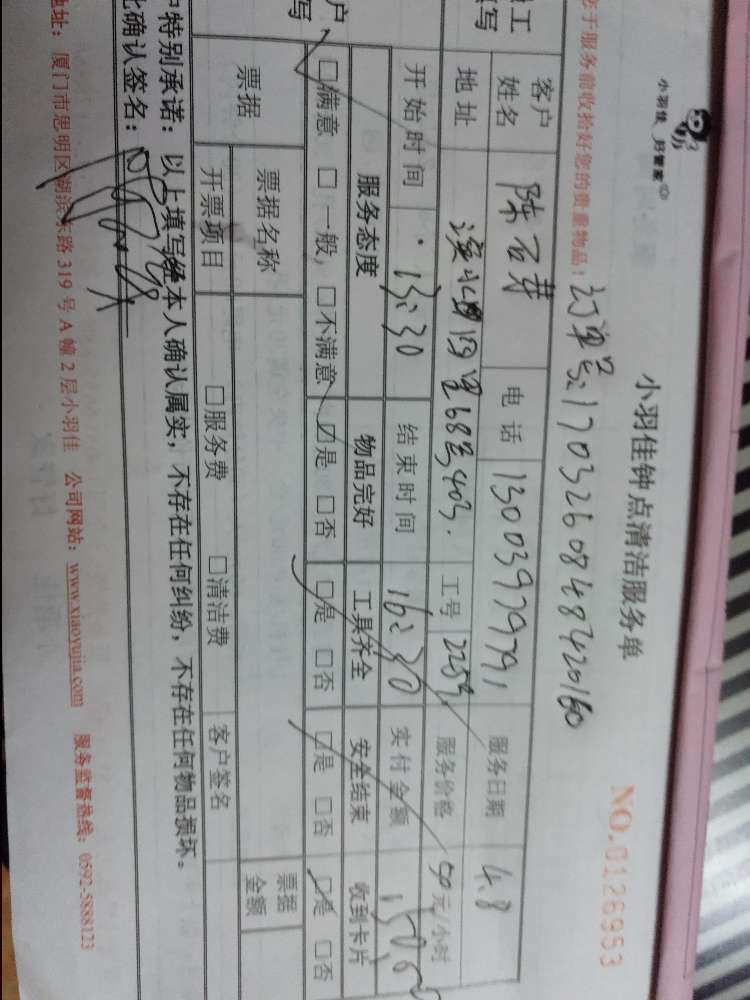 小羽佳 好管家
小羽佳钟点清洁服务单
NO.0126953
于服务前收拾好您的贵重物品: 订单号:1703260848420160
工 客户姓名 陈 电话 13003979791 服务日期 4.8
写 地址 68号403. 工号 2252 服务价格 50元/小时
开始时间 13:30 结束时间 16:30 实付金额 150
户 服务态度 物品完好 工具齐全 安全结束 收到卡片
写 □满意 □一般, □不满意 □是 □否 □是 □否 □是 □否 □是 □否
票据 票据名称 票据金额
开票项目 □服务费 □清洁费 客户签名
特别承诺: 以上填写经本人确认属实, 不存在任何纠纷, 不存在任何物品损坏。
此确认签名:
地址: 厦门市思明区湖滨东路319号A幢2层小羽佳 公司网站: www.xiaoyujia.com 服务监督热线: 0592-5888123